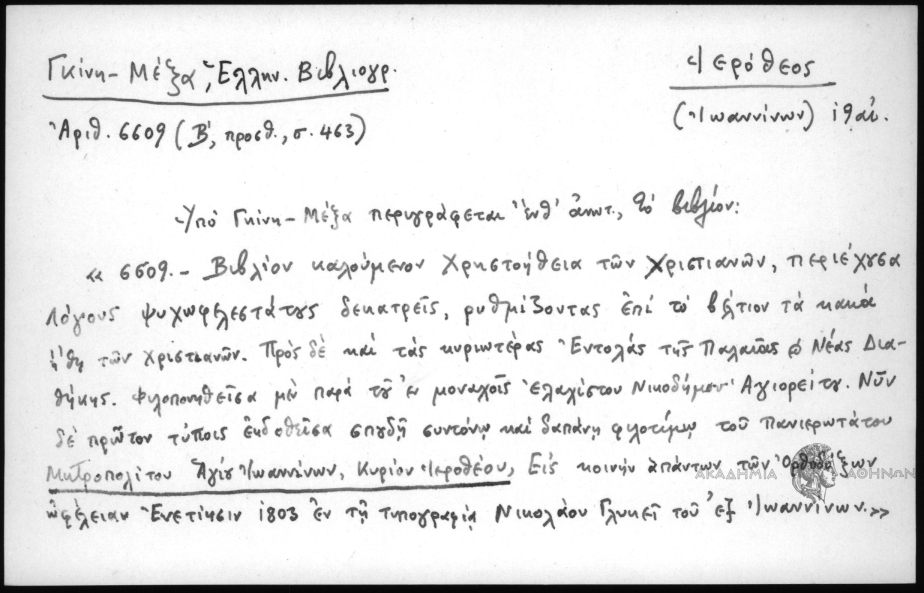 Γκίνη-Μέξα, Ἑλλην. Βιβλιογρ.
Ἱερόθεος
Ἀριθ. 6609 (Β', προσθ., σ. 463)
(Ἰωαννίνων) 19αἰ.
Ὑπό Γκίνη-Μέξα περιγράφεται ἔνθ' ἀνωτ., τό βιβλίον:
« 6609.- Βιβλίον καλούμενον Χρηστοήθεια τῶν Χριστιανῶν, περιέχουσα
λόγους ψυχωφελεστάτους δεκατρεῖς, ρυθμίζοντας ἐπί τό βέλτιον τά κακά
ἤθη τῶν Χριστιανῶν. Πρὸς δὲ καὶ τάς κυριωτέρας Ἐντολάς τῆς Παλαιᾶς & Νέας Δια-
θήκης. Φιλοπονηθεῖσα μὲν παρά τοῦ ἐν μοναχοῖς ἐλαχίστου Νικοδήμου Ἁγιορείτου. Νῦν
δὲ πρῶτον τύποις ἐκδοθεῖσα σπουδῇ συντόνῳ καὶ δαπάνῃ φιλοτίμῳ τοῦ Πανιερωτάτου
Μητροπολίτου Ἁγίου Ἰωαννίνων, Κυρίου Ἱεροθέου, Εἰς κοινὴν ἁπάντων τῶν Ὀρθοδόξων
ὠφέλειαν Ἐνετίησιν 1803 ἐν τῇ τυπογραφίᾳ Νικολάου Γλυκεῖ τοῦ ἐξ Ἰωαννίνων.»
ΑΚΑΔΗΜΙΑ ΑΘΗΝΩΝ